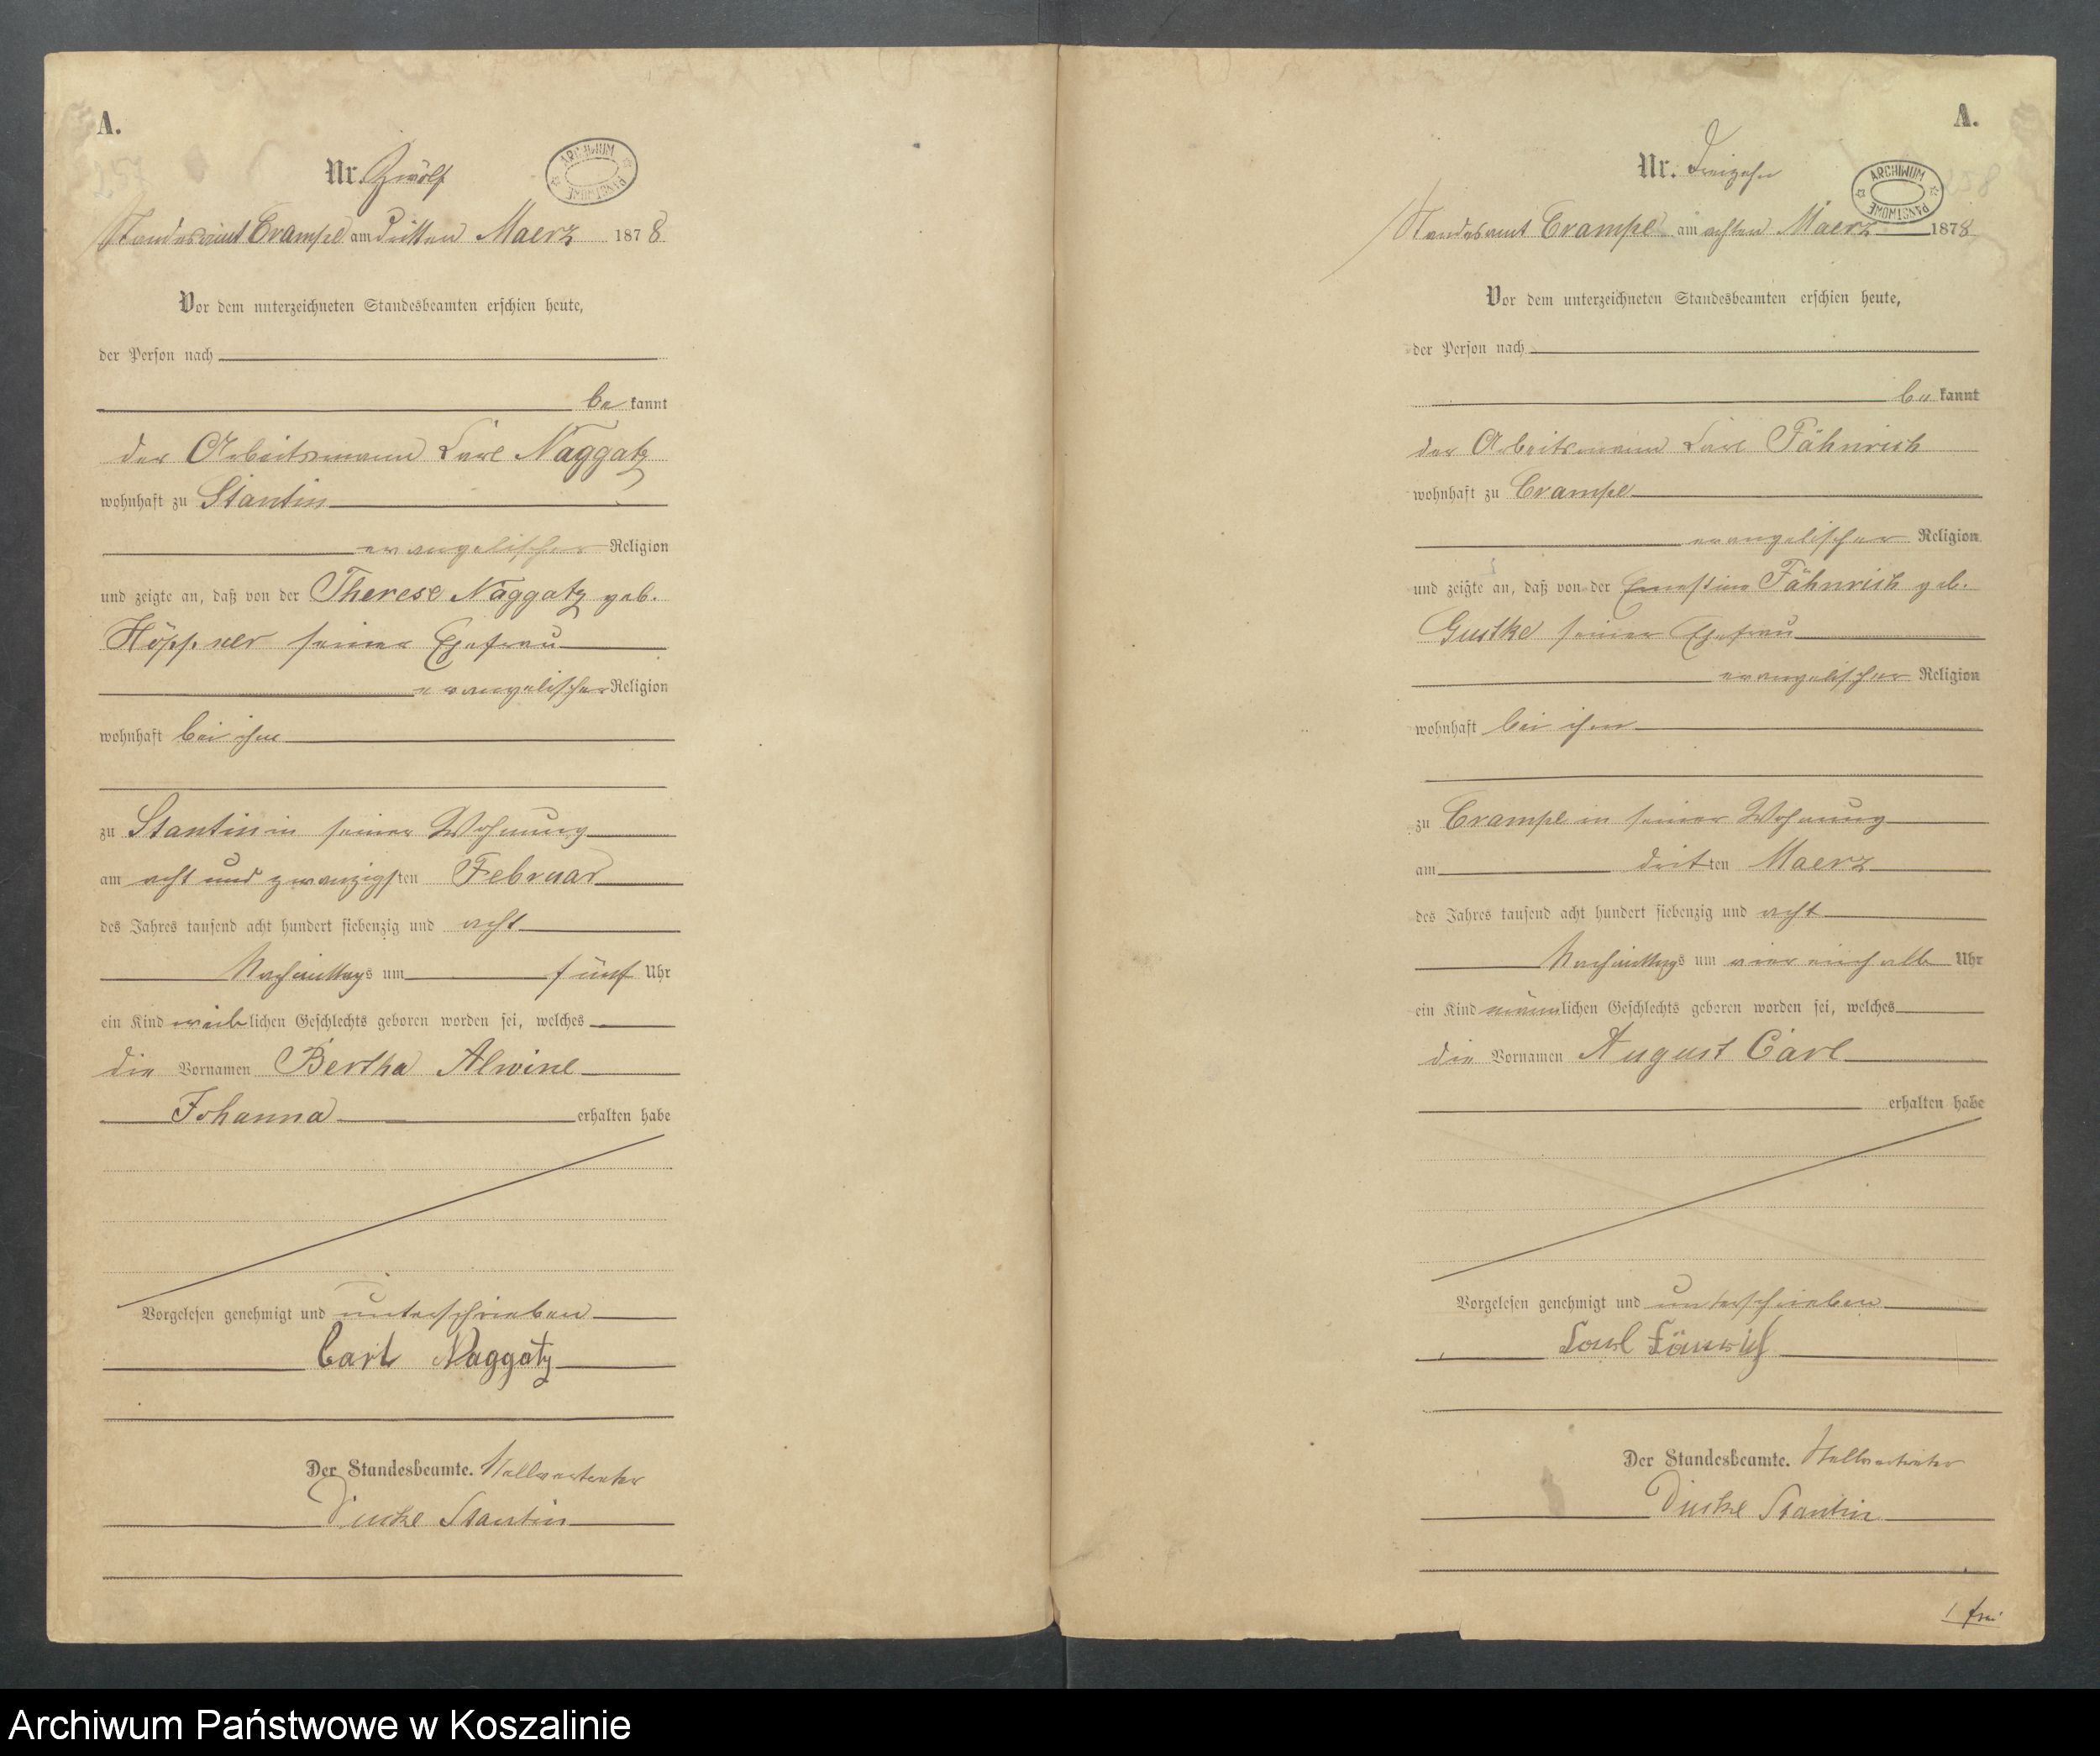 A.
Nr. Zwölf
ARCHIWUM PAŃSTWOWE
Standesamt Crampe am dritten Maerz 1878
Vor dem unterzeichneten Standesbeamten erschien heute,
der Person nach
be kannt
der Arbeitsmann Carl Naggatz
wohnhaft zu Stantin
evangelischer Religion
und zeigte an, daß von der Therese Naggatz geb.
Höppner seiner Ehefrau
evangelischer Religion
wohnhaft bei ihm
zu Stantin in seiner Wohnung
am acht und zwanzigsten Februar
des Jahres tausend acht hundert siebenzig und acht
Nachmittags um fünf Uhr
ein Kind weiblichen Geschlechts geboren worden sei, welches
die Vornamen Bertha Alwine
Johanna erhalten habe
Vorgelesen genehmigt und unterschrieben
Carl Naggatz
Der Standesbeamte. Stellvertreter
Stantin
A.
Nr. Dreizehn
ARCHIWUM PAŃSTWOWE
Standesamt Crampe am achten Maerz 1878
Vor dem unterzeichneten Standesbeamten erschien heute,
der Person nach
be kannt
der Arbeitsmann Carl Fähnrich
wohnhaft zu Crampe
evangelischer Religion
und zeigte an, daß von der Ernestine Fähnrich geb.
Gustke seiner Ehefrau
evangelischer Religion
wohnhaft bei ihm
zu Crampe in seiner Wohnung
am dritten Maerz
des Jahres tausend acht hundert siebenzig und acht
Nachmittags um vier einhalb Uhr
ein Kind männlichen Geschlechts geboren worden sei, welches
die Vornamen August Carl
erhalten habe
Vorgelesen genehmigt und unterschrieben
Carl Fänrich
Der Standesbeamte. Stellvertreter
Stantin
Archiwum Państwowe w Koszalinie